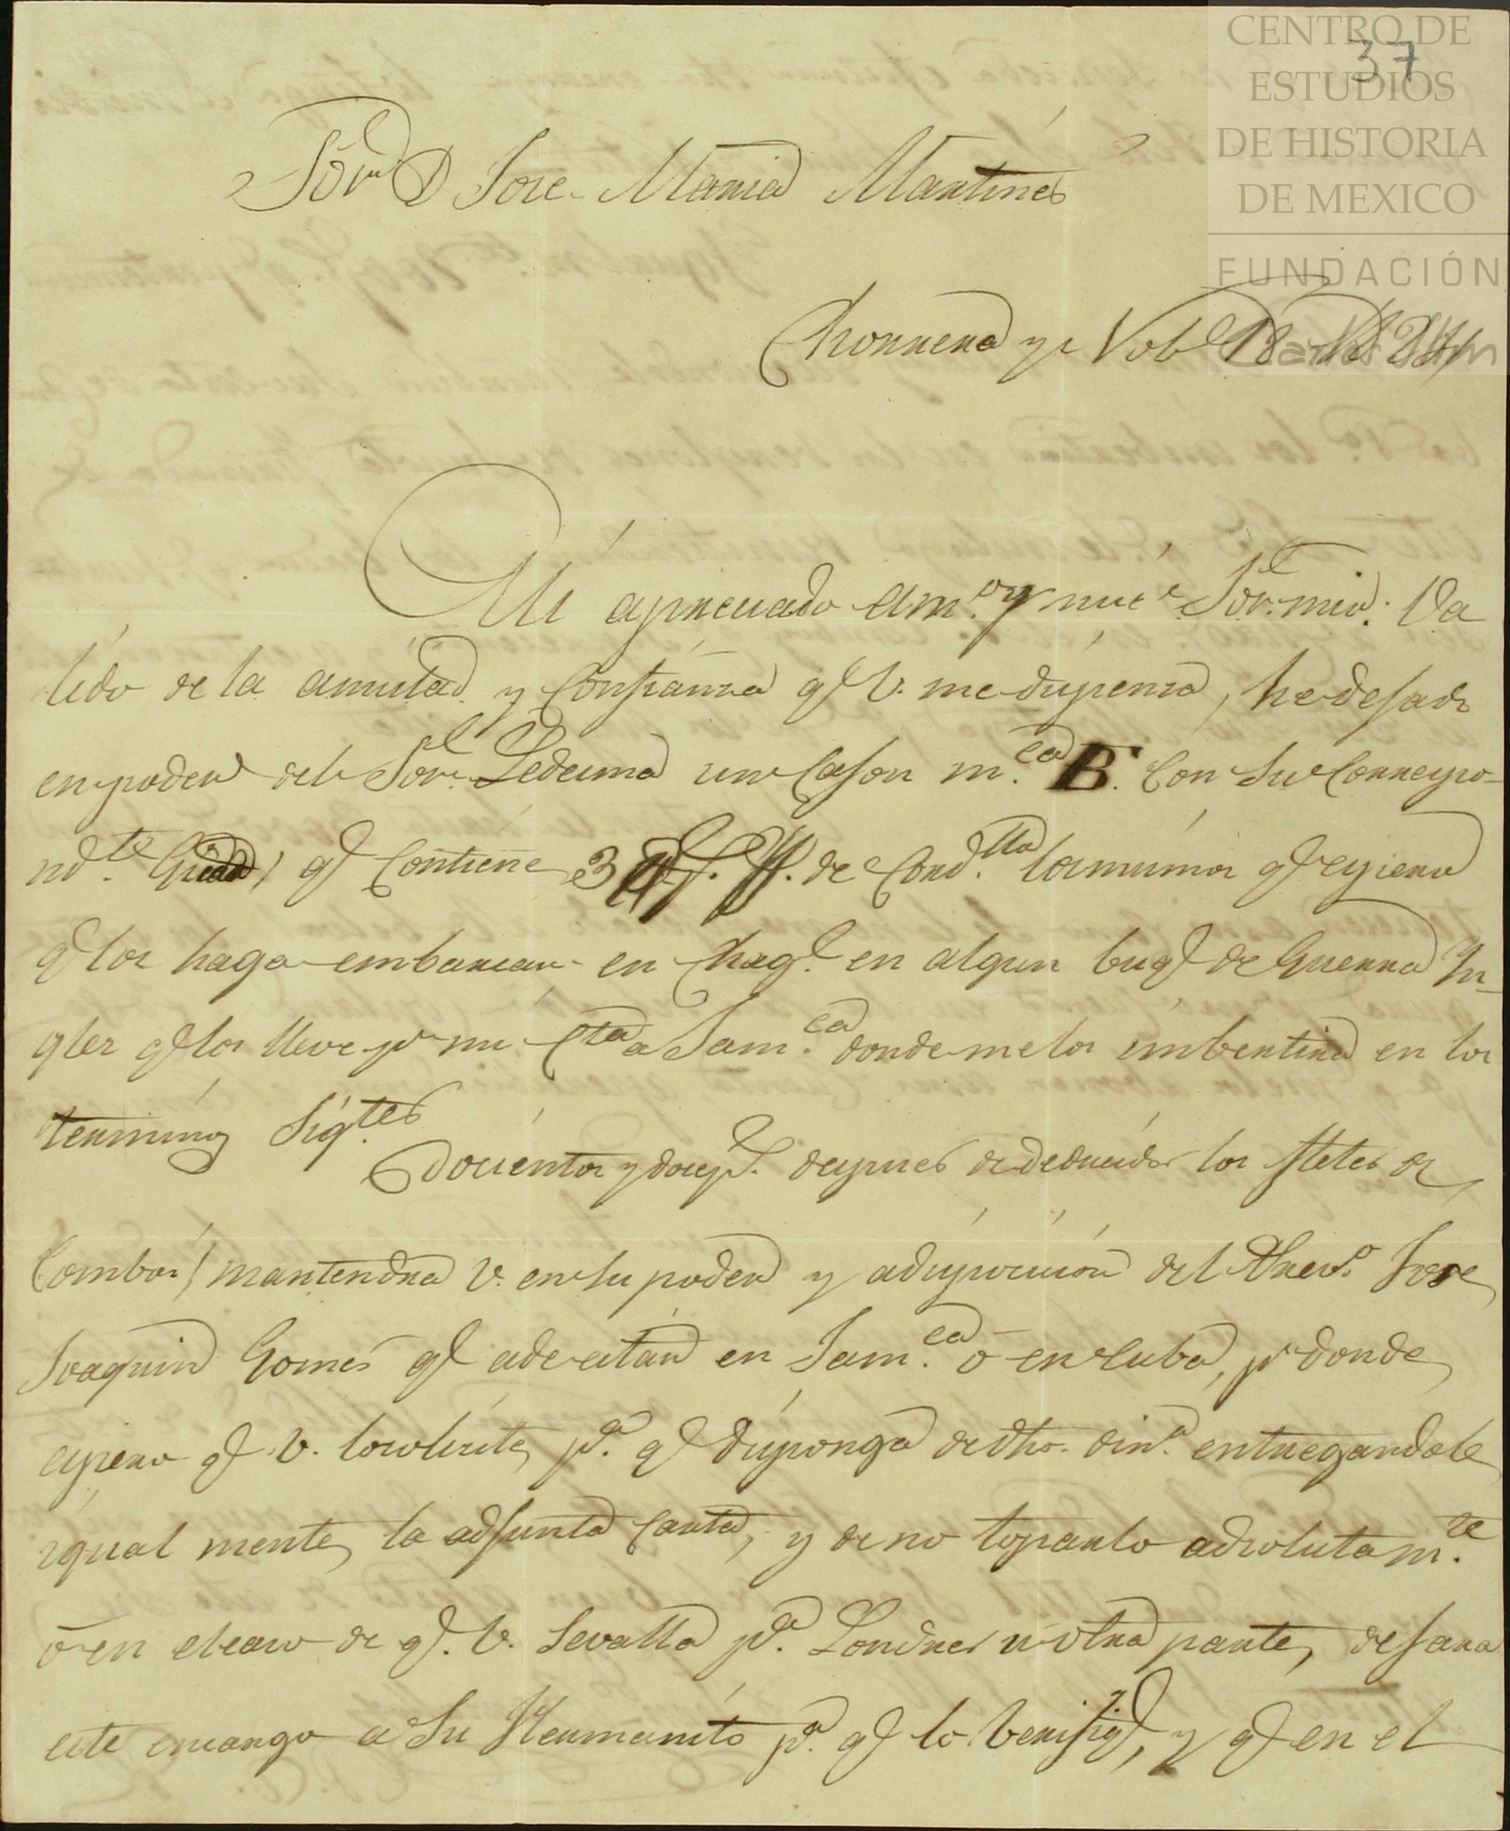 CENTRO DE
ESTUDIOS
DE HISTORIA
DE MEXICO
FUNDACIÓN
Carlos Slim
37
Sor. D Jose Maria Martines
Chorrera y Nob.e 18
Mi apreciado am.o y mui Sor. mio. Va
lido de la amistad y confianza q.e V. me dispensa, he dejado
en poder del Sor. Ledesma un Cajon m.ca B. con su correspo-
nd.te Guia, q.e contiene 300 p.s f.s de Cond.lla los mismos q.e espero
q.e los haga embarcar en Chag.s en algun buq.e de Guerra In-
gles q.e los lleve p.r mi Cta a Jam.ca donde me los imbertira en los
terminos Sig.tes
Docientos y dos p.s despues de deducidos los fletes de
ambos, mantendra V. en su poder y adisposicion del Presv.o Jose
Joaquin Gomes q.e ade estar en Jam.ca o en Cuba, p.r donde
espero q.e V. lo solicite, p.a q.e disponga de dho. din.o entregandole
igual mente, la adjunta carta, y de no toparlo adsolutam.te
o en el caso de q.e V. se valla p.a Londres u otra parte, dejara
este encargo a su Hermanito p.a q.e lo berifiq.e, y q.e en el